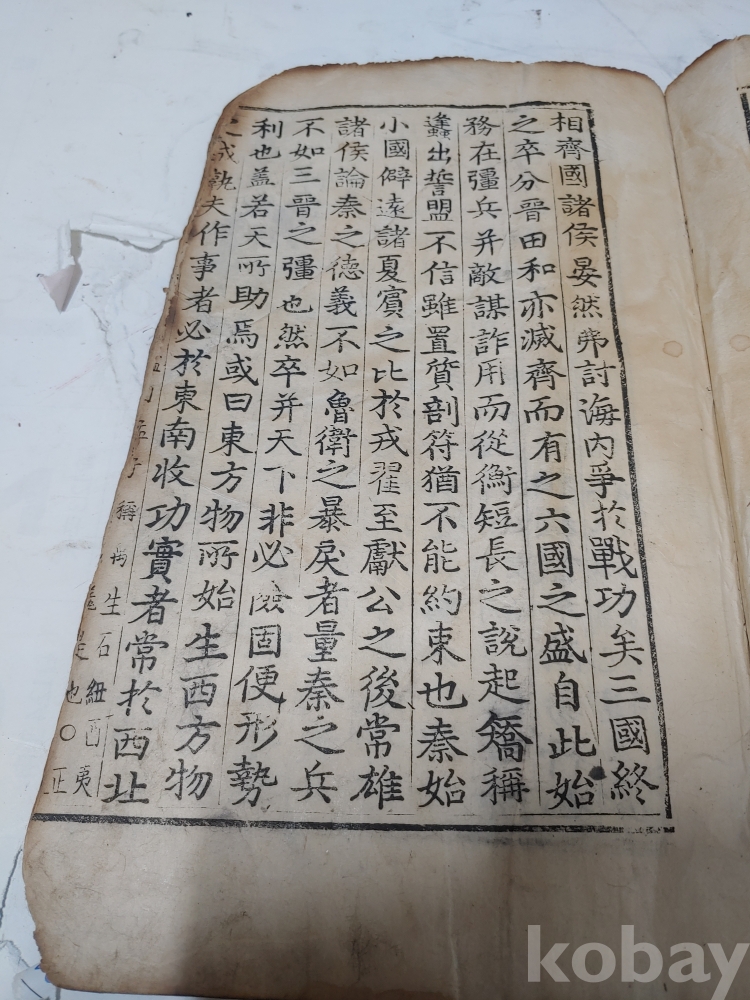 相齊國諸侯晏然弗討海內爭於戰功矣三國終
之卒分晉田和亦滅齊而有之六國之盛自此始
務在彊兵并敵謀詐用而從衡短長之說起矯稱
蠭出誓盟不信雖置質剖符猶不能約束也秦始
小國僻遠諸夏賓之比於戎翟至獻公之後常雄
諸侯論秦之德義不如魯衛之暴戾者量秦之兵
不如三晉之彊也然卒并天下非必險固便形勢
利也蓋若天所助焉或曰東方物所始生西方物
成孰夫作事者必於東南收功實者常於西北
稱禹生石紐西夷
是也○正
kobay